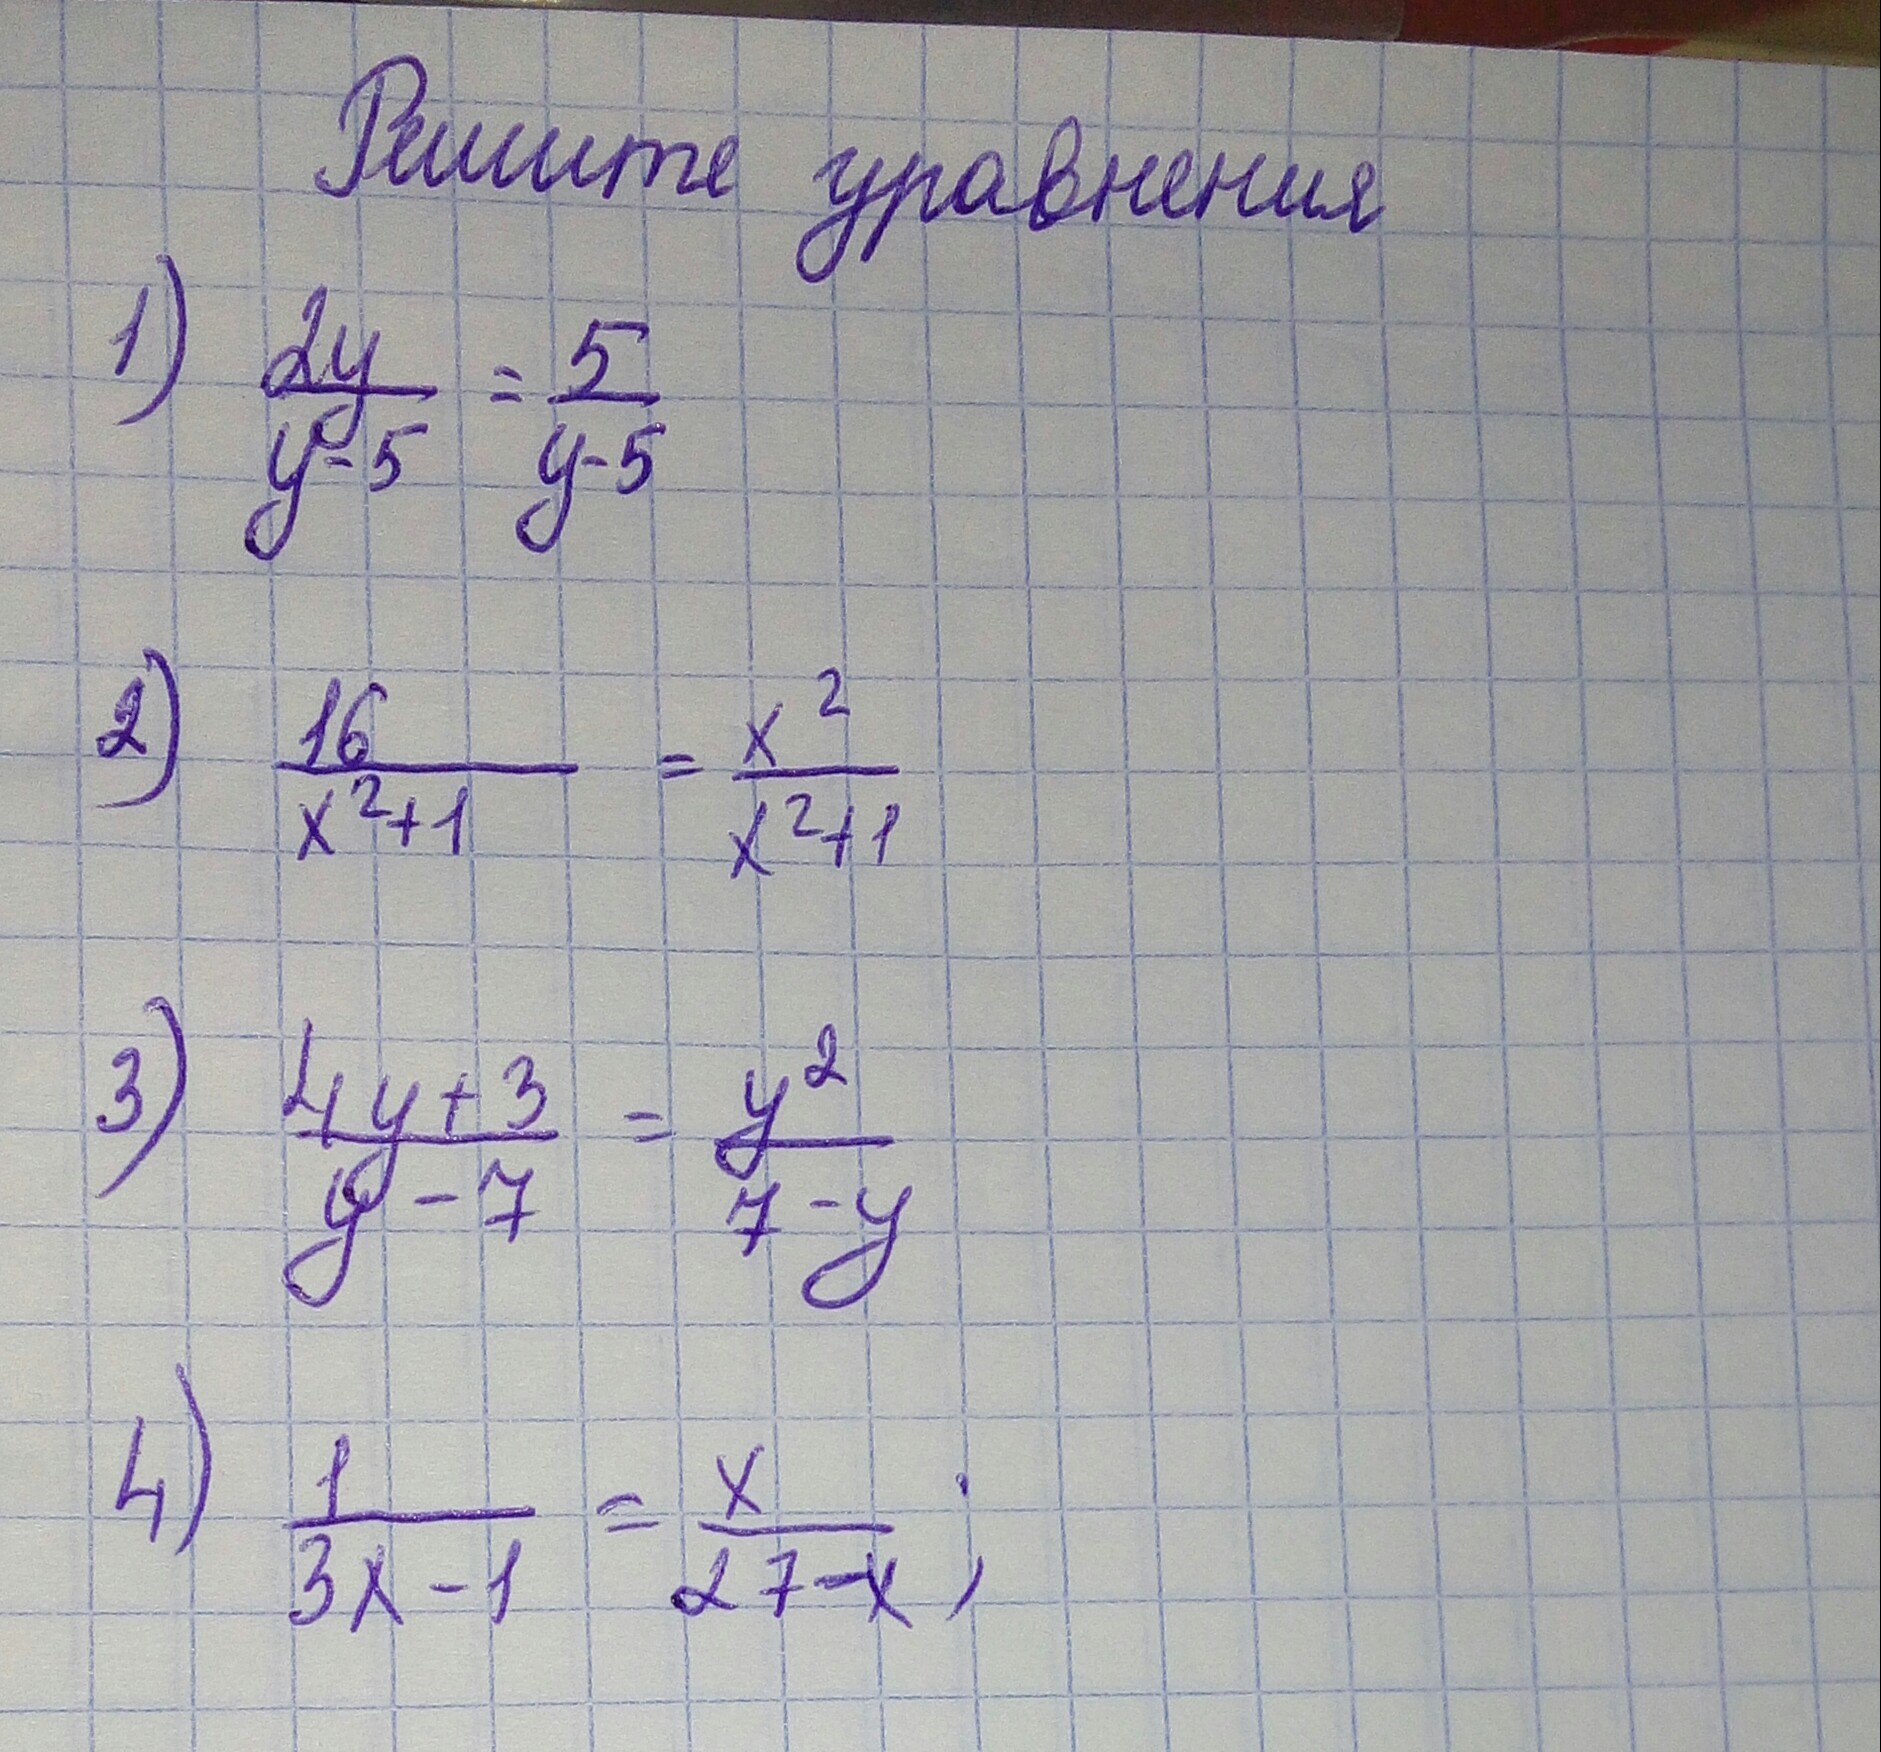 Решите уравнения
1) 2y/y-5 = 5/y-5
2) 16/x²+1 = x²/x²+1
3) 4y+3/y-7 = y²/7-y
4) 1/3x-1 = x/27-x ;